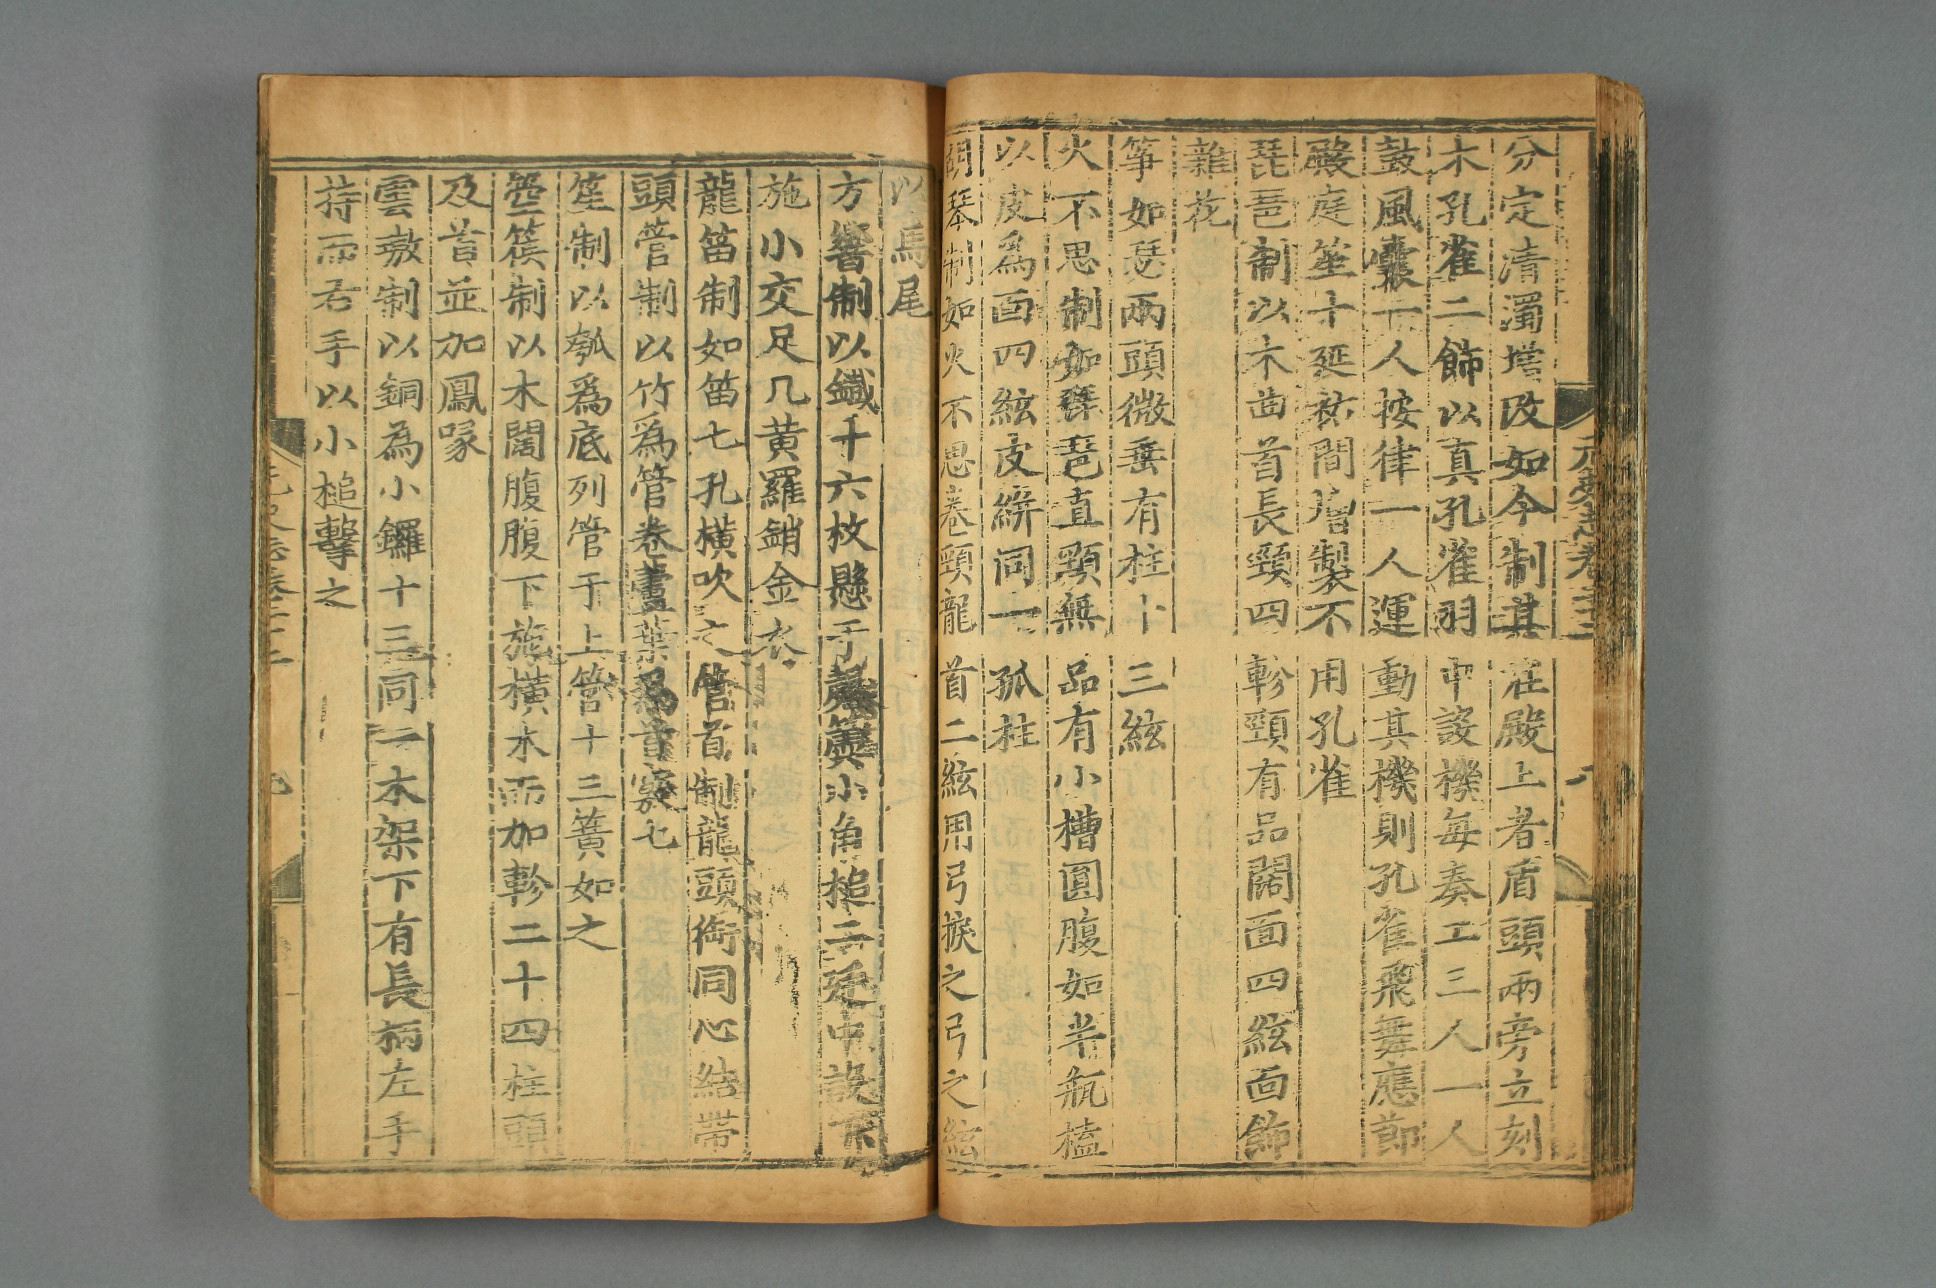 分定清濁增改如今制其在殿上者盾頭兩旁立刻
木孔雀二飾以真孔雀羽中設機每奏工三人一人
鼓風囊一人按律一人運動其機則孔雀飛舞應節
殿庭笙十延祐間增製不用孔雀
琵琶制以木曲首長頸四軫頸有品闊面四絃面飾
雜花
箏如瑟兩頭微垂有柱十三絃
火不思制如琵琶直頸無品有小槽圓腹如半瓶榼
以皮為面四絃皮絣同一孤柱
胡琴制如火不思卷頸龍首二絃用弓捩之弓之絃
以馬尾
方響制以鐵十六枚懸于磬簴小角槌二廷中設下
施小交足几黃羅銷金衣
龍笛制如笛七孔橫吹之管首制龍頭銜同心結帶
頭管制以竹為管卷蘆葉為首竅七
笙制以瓠為底列管于上管十三簧如之
箜篌制以木闊腹腹下施橫木而加軫二十四柱頭
及首並加鳳喙
雲璈制以銅為小鑼十三同一木架下有長柄左手
持而右手以小槌擊之